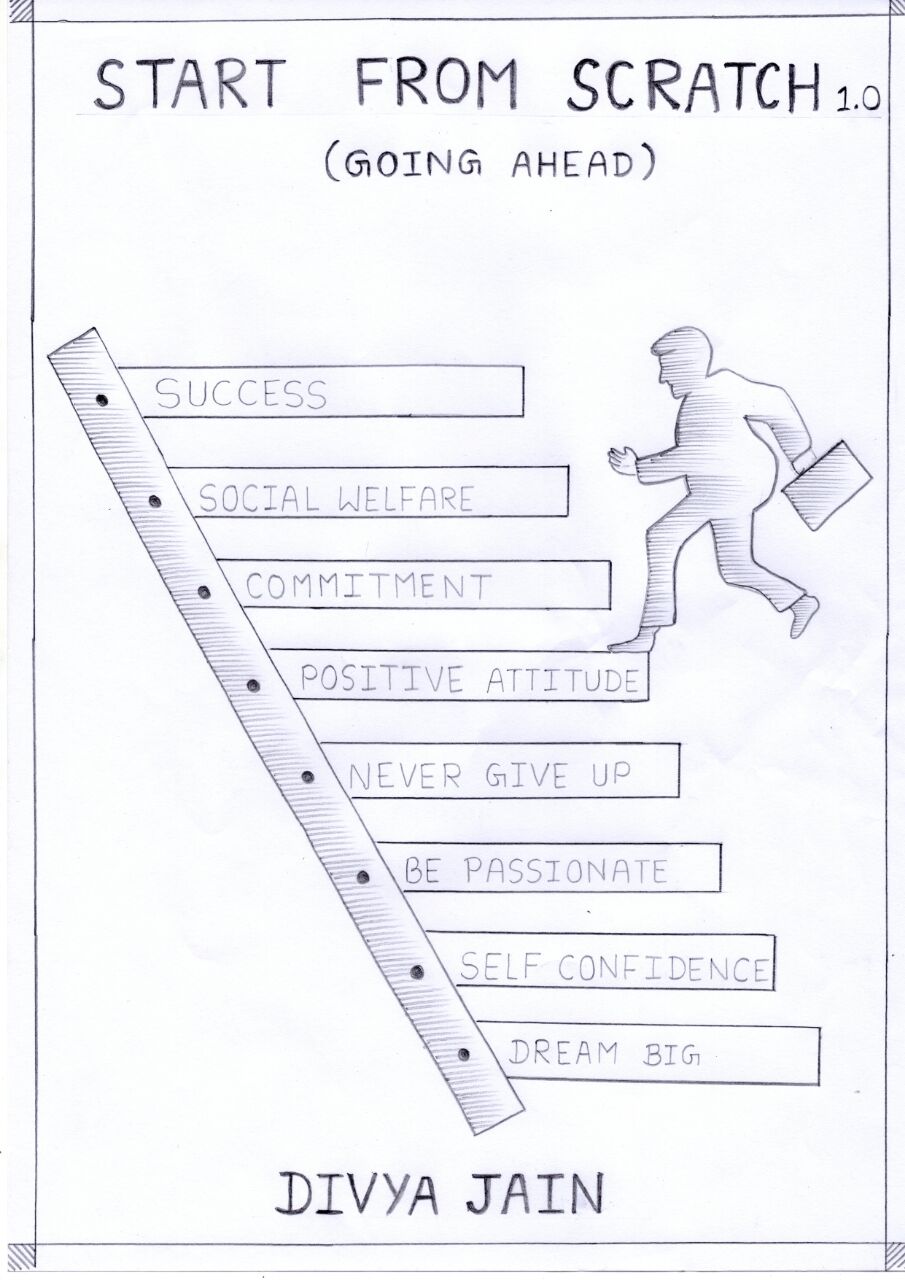 START FROM SCRATCH 1.0
(GOING AHEAD)
SUCCESS
SOCIAL WELFARE
COMMITMENT
POSITIVE ATTITUDE
NEVER GIVE UP
BE PASSIONATE
SELF CONFIDENCE
DREAM BIG
DIVYA JAIN